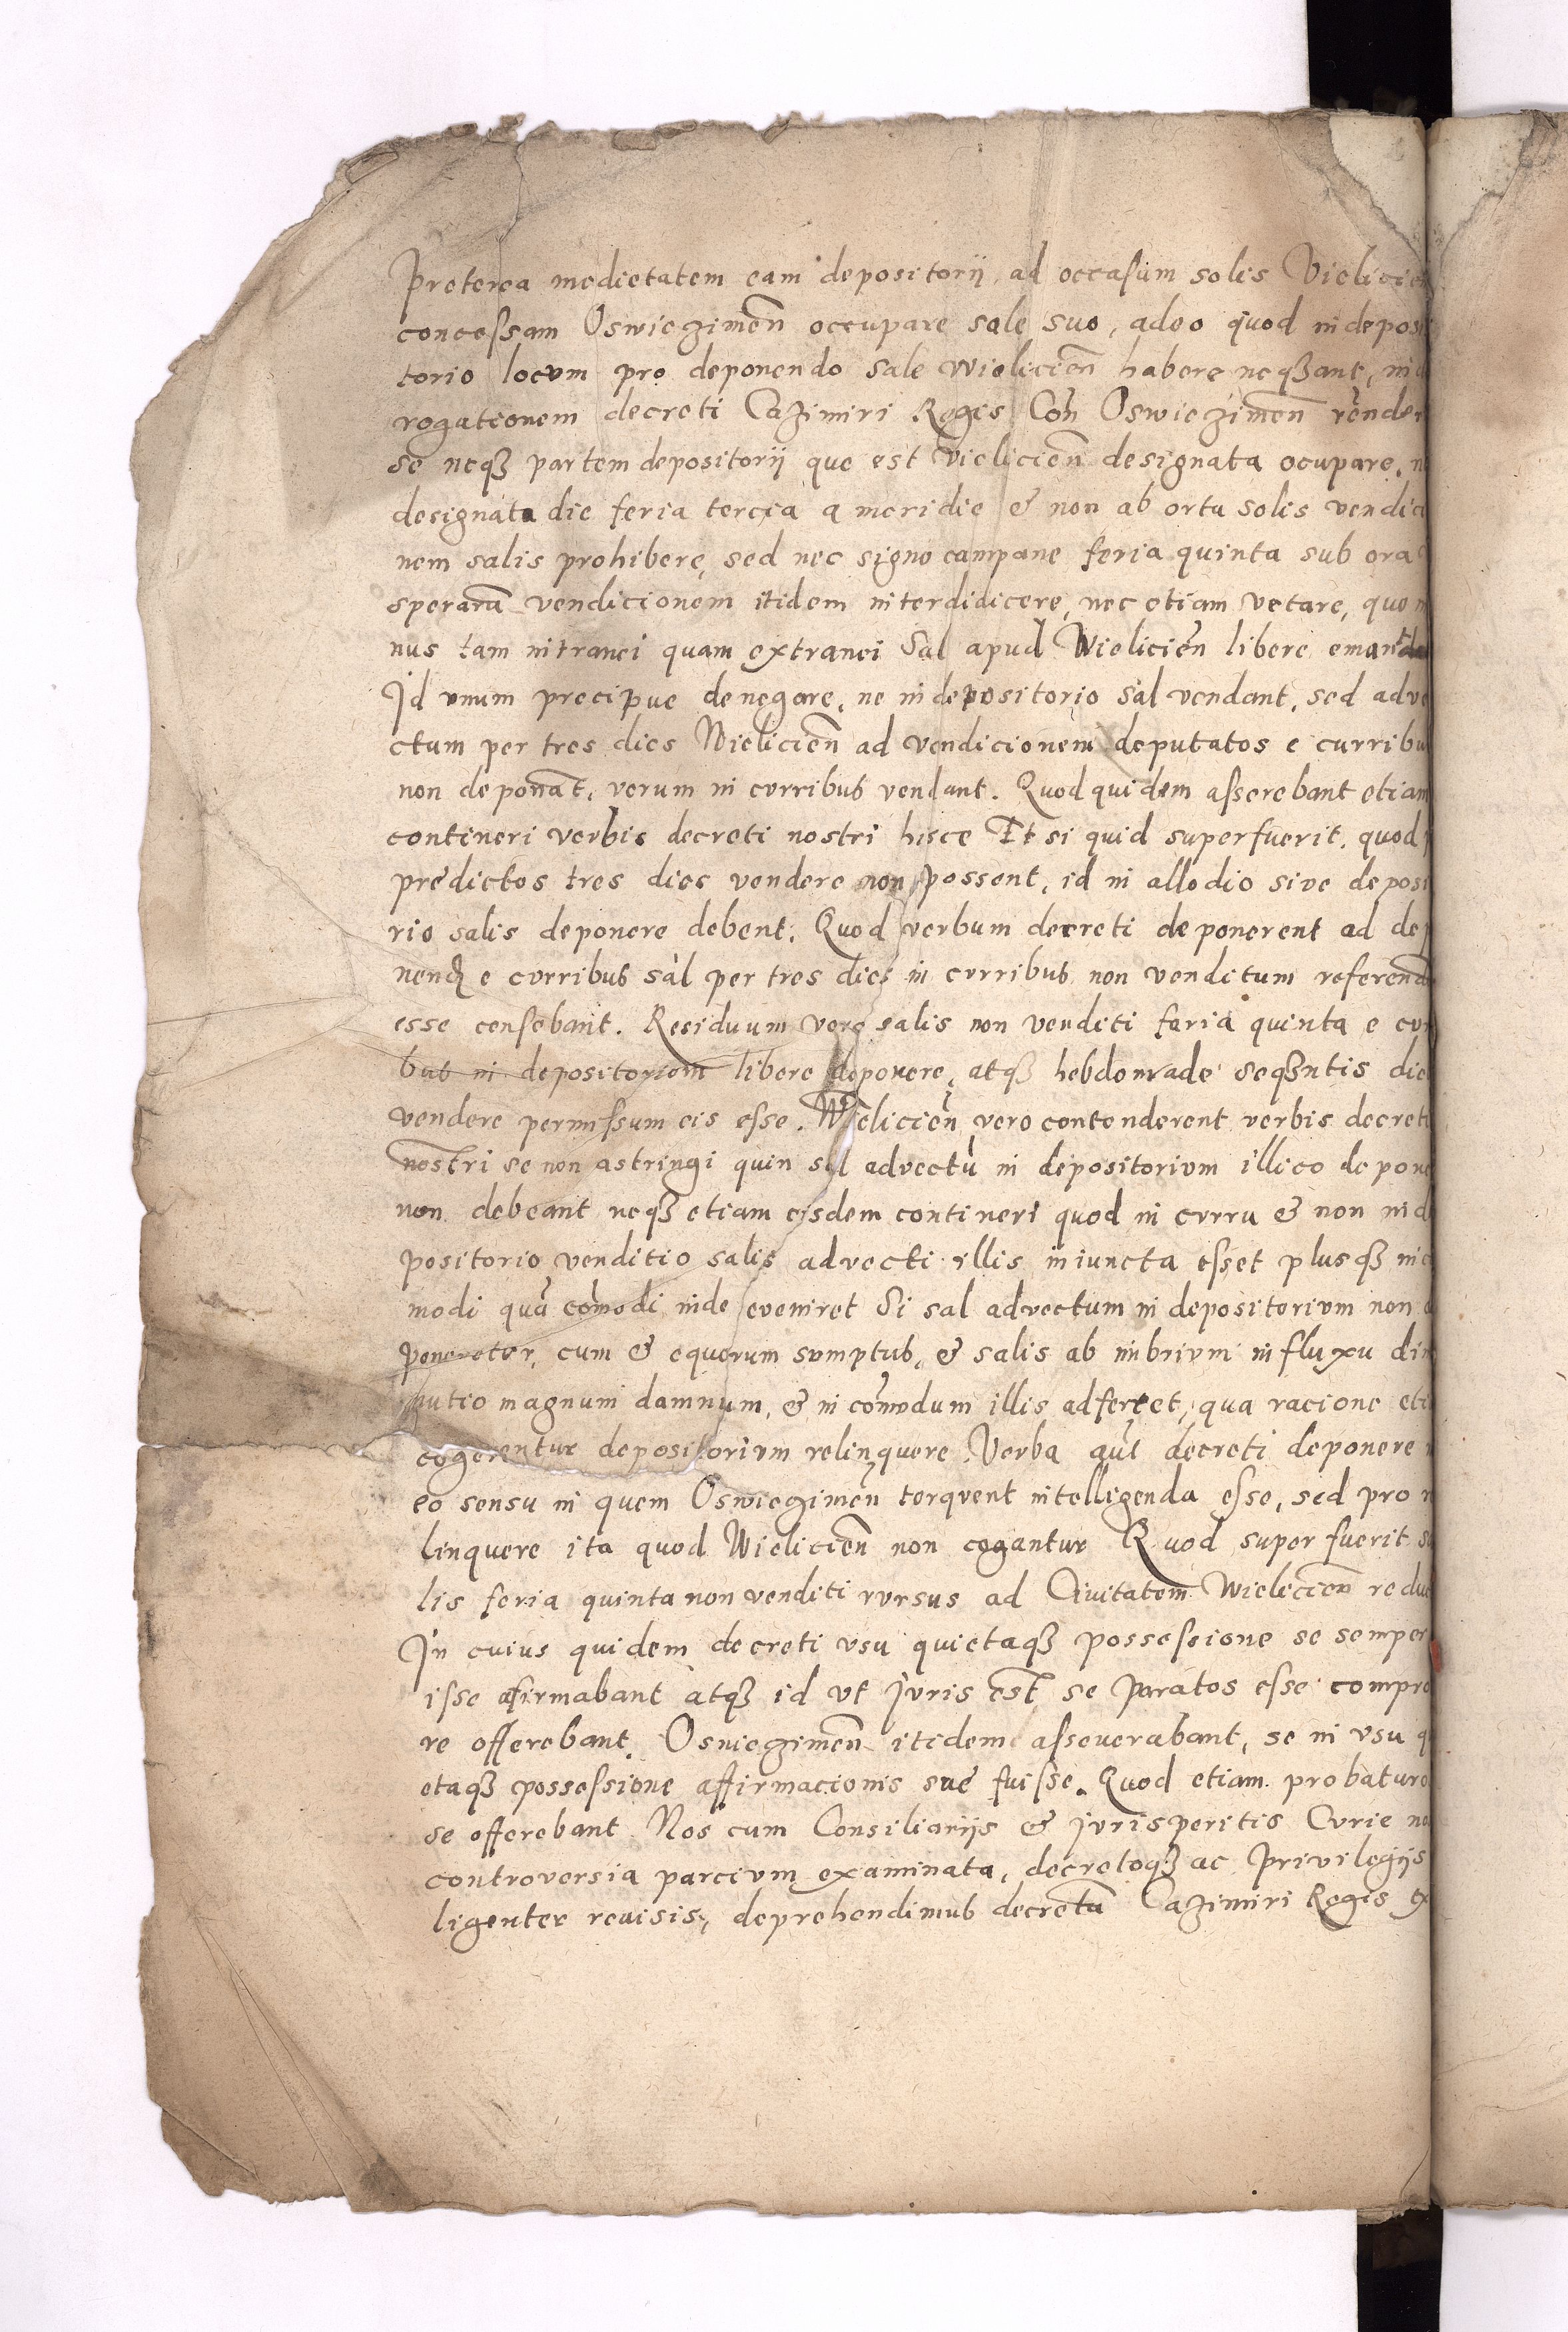 Preterea medietatem eam depositorij ad occasum solis Vielicie
concessam Oswieczimen̄ occupare sale suo, adeo quod in deposi
torio locum pro deponendo sale Wielicien̄ habere neqꝫant, in de
rogationem decreti Cazimiri Regis Con̄ Oswieczimen̄ render
se neqꝫ partem depositorij que est Vielicien̄ designata ocupare, n
designata die feria tercia a meridie & non ab ortu solis vendici
nem salis prohibere, sed nec signo campane feria quinta sub ora
sperarā vendicionem itidem interdidicere, nec etiam vetare, quo m
nus tam intranei quam extranei Sal apud Wielicien̄ libere emant
Id vnum precipue denegare, ne in depositorio sal vendant, sed adve
ctum per tres dies Wielicien̄ ad vendicionem deputatos e curribu
non deponāt, verum in curribus vendant. Quod quidem asserebant etiam
contineri verbis decreti nostri hisce Et si quid superfuerit, quod p
predictos tres dies vendere non possent, id in allodio sive deposi
rio salis deponere debent. Quod verbum decreti deponerent ad dep
nend e curribus sal per tres dies in curribus non venditum referend
esse censebant. Residuum vero salis non venditi feria quinta e cur
bus in depositorium libere deponere, atqꝫ hebdomade seqꝫntis die
vendere permissum eis esse. Wielicien̄ vero contenderent verbis decreti
nostri se non astringi quin sal advectū in depositorium illico depone
non debeant neqꝫ etiam eisdem contineri quod in curru & non in de
positorio venditio salis advecti illis iniuncta esset plusqꝫ inco
modi quā com̄odi inde eveniret Si sal advectum in depositorium non d
poneretur, cum & equorum sumptus, & salis ab imbrium influxu dim
nutio magnum damnum, & incom̄odum illis adferret, qua racione eti
cogerentur depositorium relinquere. Verba aūt decreti deponere n
eo sensu in quem Oswieczimen̄ torqvent intelligenda esse, sed pro r
linquere ita quod Wielicien̄ non cogantur Quod superfuerit sa
lis feria quinta non venditi rursus ad Civitatem Wielicien̄ redu
In cuius quidem decreti vsu quietaqꝫ possessione se semper
isse afirmabant atqꝫ id vt juris est se paratos esse compro
re offerebant. Oswieczimen̄ itidem asseverabant, se in vsu q
etaqꝫ possessione affirmacionis sue fuisse. Quod etiam probaturo
se offerebant. Nos cum Consiliarijs & jurisperitis Curie no
controversia parcium examinata, decretoqꝫ ac Privilegijs
ligenter revisis, deprehendimus decretū Cazimiri Regis ex